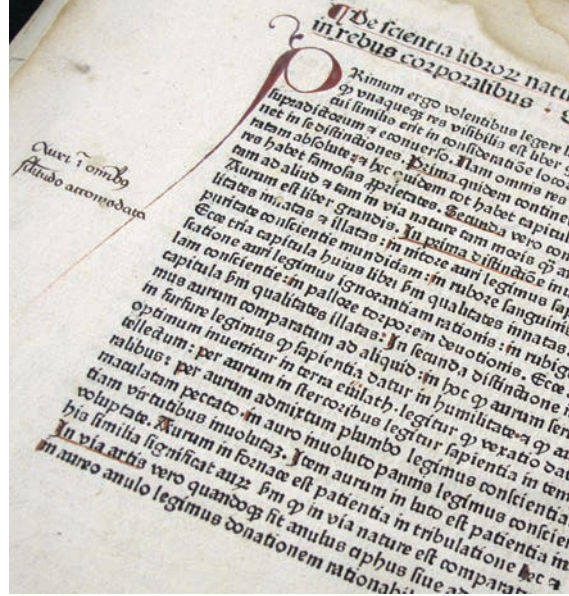 ¶De scientia libroꝝ natu
in rebus corporalibus :
PRimum ergo volentibus legere
ꝙ vnaqueqꝫ res visibilis est liber
cui similis erit in consideratiõe loco
⁊ econuerso. Nam omnis res
net in se distinctiones. Prima quidem contine
ratam absolute: ⁊ hec quidem tot habet capitul
res habet famosas ꝓprietates. Secunda vero com
tam ad aliud ⁊ tam in via nature tam moris ꝙ
Aurum est liber grandis. In prima distinctiõe
litates innatas ⁊ illatas: in nitore auri legimus
puritate conscientie mundiciam: in rubore sanguini
Ecce tria capitula huius libri ẞm qualitates innatas.
scatione auri legimus ignorantiam rationis: in rubig
lam conscientie: in pallore torporem deuotionis. Ecce
capitula ẞm qualitates illatas: In secunda distinctione
mus aurum comparatum ad aliquid: in hoc ꝙ aurum
in furfure legimus ꝙ sapientia datur in humilitate: ⁊ ꝙ
optimum inuenitur in terra euilath: legitur ꝙ vexatio dat
tellectum: per aurum in stercoribus legitur sapientia in
ralibus: per aurum admixtum plumbo legimus conscientiam
maculatam peccato: in auro inuoluto pannis legimus conscien
tiam virtutibus inuolutaꝫ. Item aurum in luto est patientia in
voluptate. Aurum in fornace est patientia in tribulatione hec ⁊
his similia significat auꝝ ẞm ꝙ in via nature est comparat
In via artis vero quandoqꝫ fit anulus ciphus siue
in aureo anulo legimus donationem rationabil
Auri ĩ omnibꝰ
accomodata